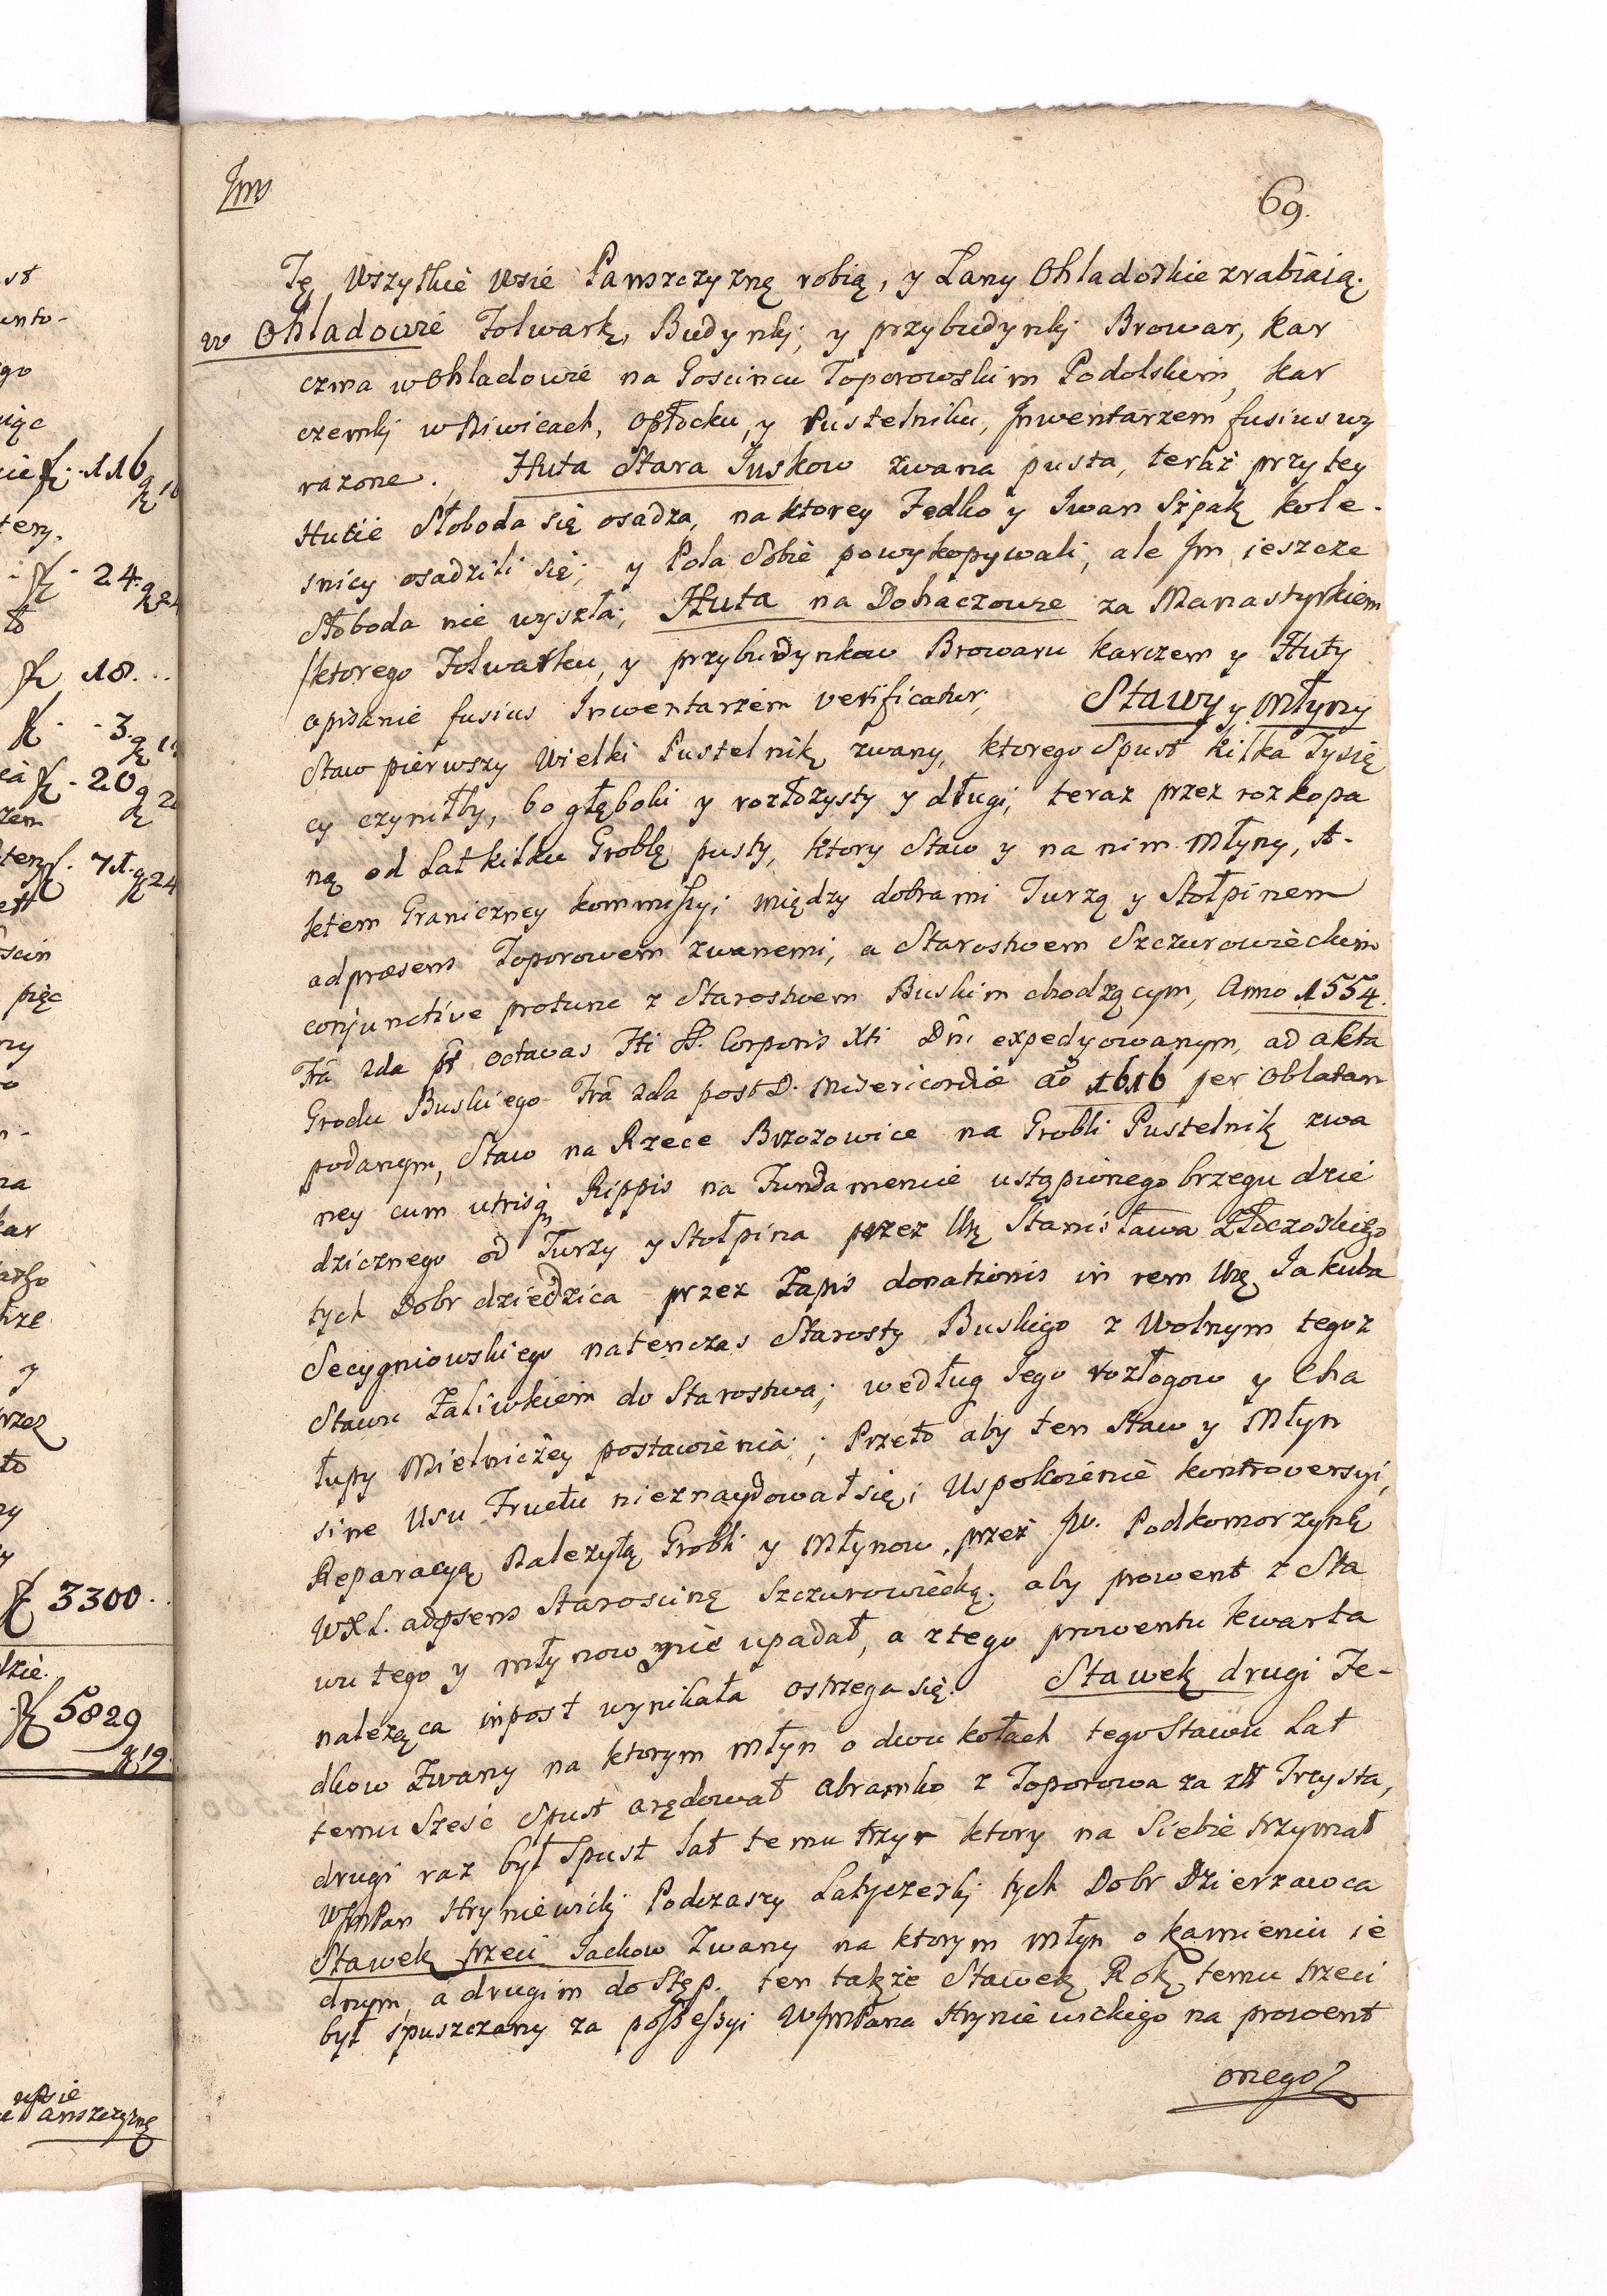 Jnw
69.
Tę Wszytkie Wsie Panszczyznę robią, y Lany Ohladoskie zrabiaią.
w Ohladowie Folwark, Budynki, y przybudynki Browar, kar
czma w Ohladowie na Goscincu Toporowskim Podolskim, kar
czemki w Niwicach, Opłocku, y Pustelniku, Jnwentarzem fusius wy
razone. Huta Stara Juskow zwana pusta, teraz przy tey
Hucie Słoboda się osadza, na ktorey Fedko y Iwan Szpak kole-
snicy osadzili się, y Pola Sobie powykopywali, ale Jm ieszcze
Słoboda nie wyszła; Huta na Dohaczowie za Manastyrkiem
/ktorego Folwarku, y przybudynkow Browaru karczem y Huty
opisanie fusius Inwentarzem verificatur, Stawy y Młyny
Staw pierwszy Wielki Pustelnik zwany, ktorego Spust kilka Tysię
cy czyniłby, bo głęboki y rozłozysty y długi, teraz przez rozkopa
ną od Lat kilku Groblę pusty, ktory Staw y na nim Młyny, A-
ktem Graniczney kommissyi między dobrami Turzą y Stołpinem
ad præsens Toporowem zwanemi, a Starostwem Szczurowieckim
conjunctive protunc z Starostwem Buskim chodzącym, Anno 1554.
Fra 2da pt octavas Fti SS. Corporis Xti Dni expedyowanym, ad akta
Grodu Buskiego Fra 2da post D. Misericordiæ ao 1616 per Oblatam
podanym, Staw na Rzece Brzozowice na Grobli Pustelnik zwa
ney cum utrisq Rippis na Fundamencie ustąpionego brzegu dzie
dzicznego od Turzy y Stołpina przez Ur Stanisława Złoczoskiego
tych Dobr dziedzica przez Zapis donationis in rem Ur Jakuba
Secygniowskiego natenczas Starosty Buskiego z Wolnym tegoz
Stawu Zaliwkiem do Starostwa, według Iego rozłogow y Cha
łupy Mielniczey postawienia; Przeto aby ten Staw y Młyn
sine Usu Fructu nieznaydował się; Uspokoienie kontroversyi,
Reparacyą Nalezytą Grobli y Młynow, przez Jw. Podkomorzynę
WXL. adpsens Staroscinę Szczurowiecką, aby prowent z Sta
wu tego y młynow nie upadał, a z tego prowentu kwarta
naleząca inpost wynikała ostrzega się. Stawek drugi Fe-
dkow Zwany na ktorym młyn o dwu kołach tego Stawu Lat
temu Szesc Spust arędował Abramko z Toporowa za zł Trzysta,
drugi raz był Spust lat temu trzy ktory na Siebie trzymał
WJmPan Hryniewicki Podczaszy Latyczeski tych Dobr Dzierzawca
Stawek trzeci Jackow Zwany na ktorym młyn o kamieniu ie
dnym, a drugim do Stęp. ten także Stawek Rok temu trzeci
był spuszczany za possessyi WJmPana Hryniewickiego na prowent
onego